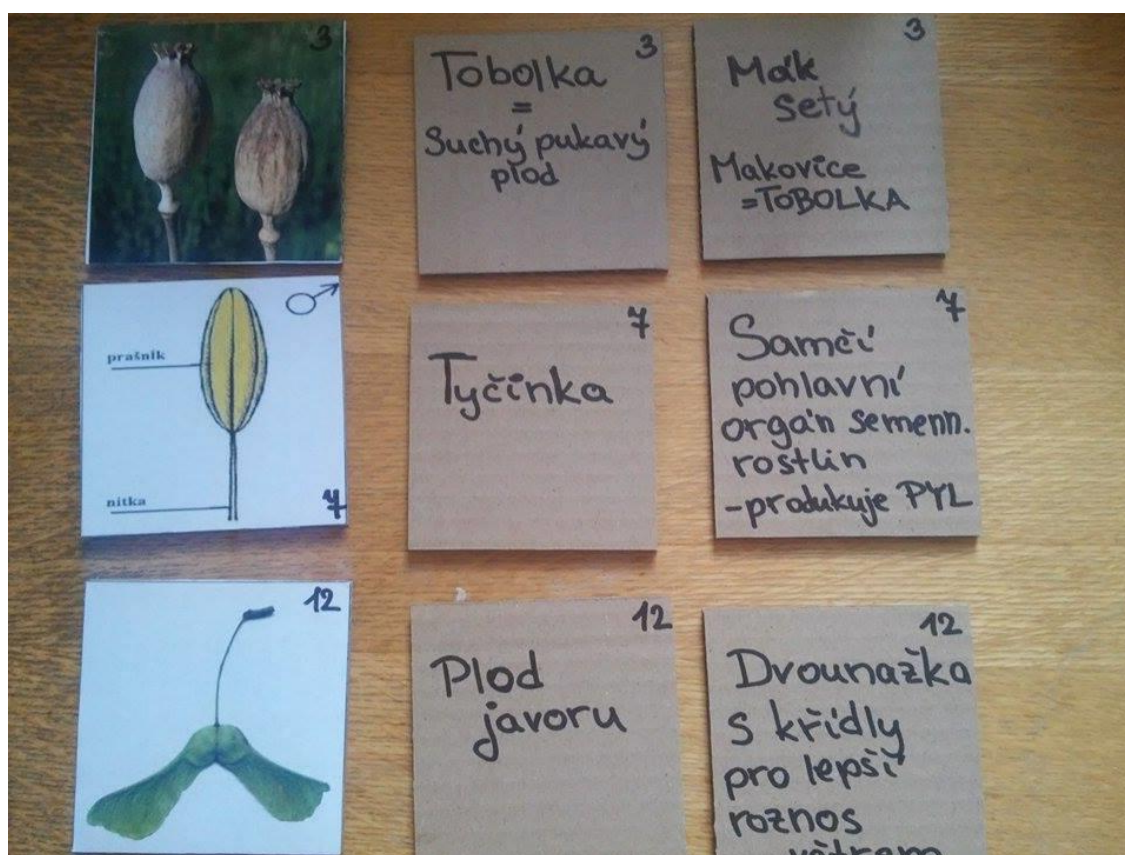 3
Tobolka
=
Suchý pukavý
plod
3
Mák
setý
Makovice
=TOBOLKA
3
prašník
nitka
7
Tyčinka
7
Samčí
pohlavní
orgán semenn.
rostlin
-produkuje PYL
7
12
Plod
javoru
12
Dvounažka
s křídly
pro lepší
roznos
větrem
12